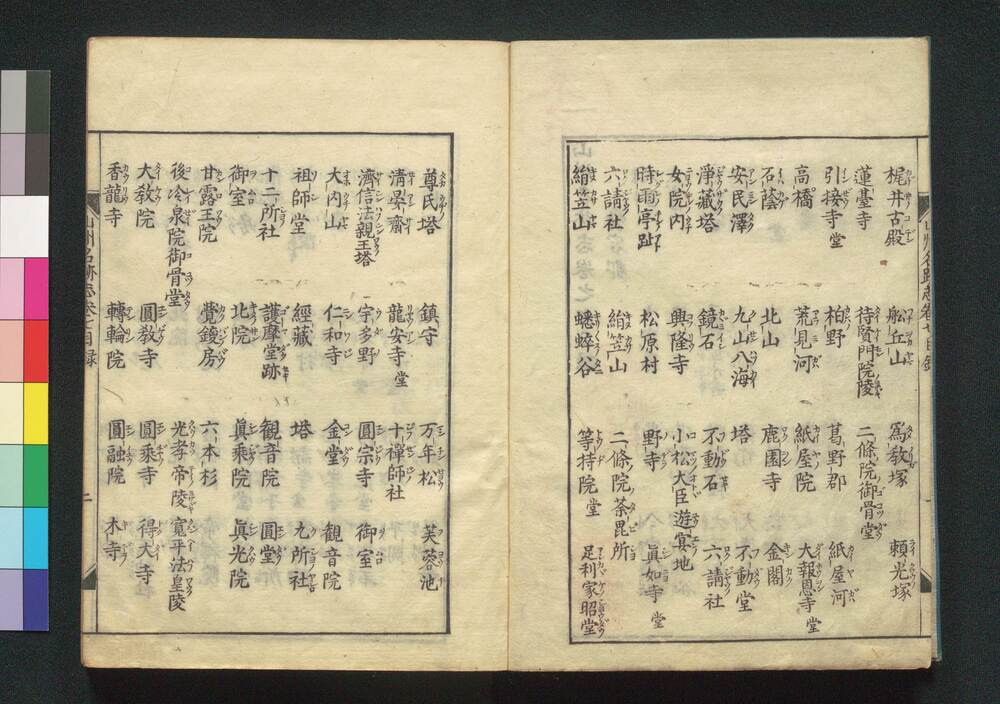 梶井古殿　船丘山　爲教塚　頼光塚
蓮臺寺　待賢門院陵　二條院御骨堂
引接寺堂　柏野　葛野郡　紙屋河
高橋　荒見河　紙屋院　大報恩寺堂
石蔭　北山　鹿園寺　金閣
安民澤　九山八海　塔　不動堂
淨藏塔　鏡石　不動石　六請社
女院内　興隆寺　小松大臣遊宴地
時雨亭趾　松原村　野寺　眞如寺堂
六請社　絹笠山　二條院荼毘所
絹笠山　蟋蟀谷　等持院堂　足利家昭堂
山州名跡志卷七目録
尊氏塔　鎮守　万年松　芙蓉池
清晏齋　龍安寺堂　十禪師社
濟信法親王塔　宇多野　圓宗寺　御室
大内山　仁和寺　金堂　觀音院
祖師堂　經藏　塔　九所社
十二所社　護摩堂跡　観音院　圓堂
御室　北院　眞乘院　眞光院
甘露王院　覺鑁房　六本杉
後冷泉院御骨堂　光孝帝陵　寛平法皇陵
大教院　圓教寺　圓乘寺　得大寺
香龍寺　轉輪院　圓融院　木寺
山州名跡志卷七目録　二